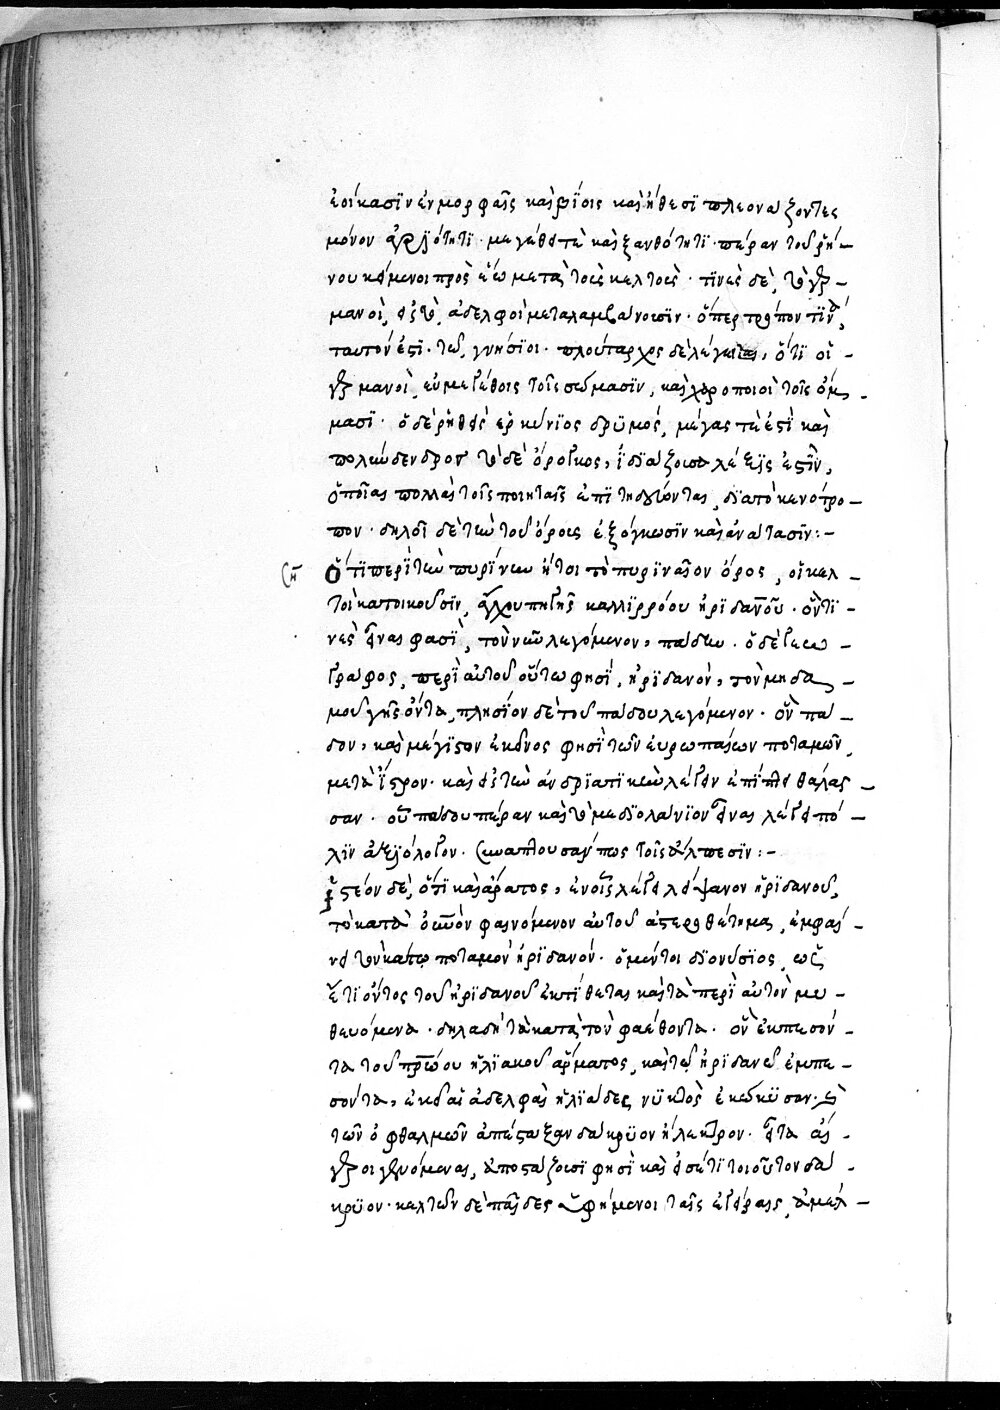 ἐοίκασϊν ἐν μορφαῖς καὶ βΐοις καὶ ἤθεσϊ πλεονάζοντες
μόνον ἀγρϊότητϊ. μεγέθει τὲ καὶ ξανθότητϊ. πέραν τοῦ ῥή-
νου κείμενοι πρὸς ἕω μετὰ τοὺς κελτούς. τϊνὲς δὲ, οἱ γερ-
μανοὶ, εἰς τὸ, ἀδελφοὶ μεταλαμβάνουσϊν. ὅπερ τρόπον τϊνὰ,
ταυτόν ἐστϊ. τῶ, γνήσϊοι. πλούταρχος δὲ λέγεται, ὅτϊ οἱ -
γερμανοὶ, εὐμεγέθεις τοῖς σώμασϊν, καὶ χαροποιοὶ τοῖς ὄμ-
μασϊ. ὁ δὲ ῥηθεὶς ἑρκύνϊος δρϋμός, μέγας τέ ἐστϊ καὶ
πολύδενδρον τὸ δὲ ὀροῖκος, ϊδϊάζουσα λέξϊς ἐστΐν,
ὁποΐας πολλὰς τοῖς ποιηταῖς ἐπϊτηδεύοντας, δϊὰ τὸ κενότρο-
πον. δηλοῖ δὲ τὴν τοῦ ὄρους ἐξόγκωσϊν καὶ ἀνάτασϊν:-
ση Ὅτϊ περὶ τῶν πυρΐνων ἤτοι τὸ πυρϊναῖον ὄρος, οἱ κελ -
τοὶ κατοικοῦσϊν, ἄγχου πηγῆς καλλϊρρόου ἠρϊδανοῦ. ὅντϊ -
νές τινάς φασϊ, τὸν νῦν λεγόμενον, πάδον. ὁ δὲ γεω -
γράφος, περὶ αὐτοῦ οὕτω φησΐ, ἠρϊδανὸν, τὸν μηδα -
μοῦ γῆς ὄντα, πλησΐον δὲ τοῦ πάδου λεγόμενον. ὃν πά -
δον, καὶ μέγϊστον ἐκεῖνος φησϊ τῶν εὐρωπαίων ποταμῶν,
μετὰ ἴστρον. καὶ εἰς τὴν ἀνδρϊατϊκὴν λέγειν ἐπϊπλεῖ θάλασ -
σαν. οὗ πάδου πέραν καὶ τὸ μεδϊολάνϊον τινὰς λέγει πό -
λϊν ἀξϊόλογον. συναπλουσάν πως τοῖς ἄλπεσϊν:-
ϊστέον δὲ, ὅτϊ καὶ ἄρατος, ἐν οἷς λέγει λείψανον ἠρϊδανοῦ,
τὸ κατὰ οὐνὸν φαινόμενον αὐτοῦ ἀστεροθέτημα, ἐμφαί -
νει τὸν κάτω ποταμὸν ἠρϊδανόν. ὁ μέντοι δϊονύσϊος, ὡς
ἔτϊ ὄντος τοῦ ἠρϊδανοῦ ἐκτΐθεται καὶ τὰ περὶ αὐτὸν μυ -
θευόμενα. δηλαδὴ τὰ κατὰ τὸν φαέθοντα. ὃν ἐκπεσόν -
τα τοῦ πρώου ἡλϊακοῦ ἅρματος, καὶ τῶ ἠρϊδανῶ ἐμπε -
σόντα, ἐκεῖ αἱ ἀδελφαὶ ἡλϊάδες νϋκτὸς ἐκώκϋσαν. καὶ
τῶν ὀφθαλμῶν ἀπέσταξαν δάκρϋον ἤλεκτρον. εἶτα αἴ -
γειροι γενόμεναι, ἀποστάζουσϊ φησϊ καὶ εἰσέτϊ τοιοῦτον δά -
κρϋον. κελτῶν δὲ παῖδες ὑφήμενοι ταῖς αἰγείραις, ἀμέλ -